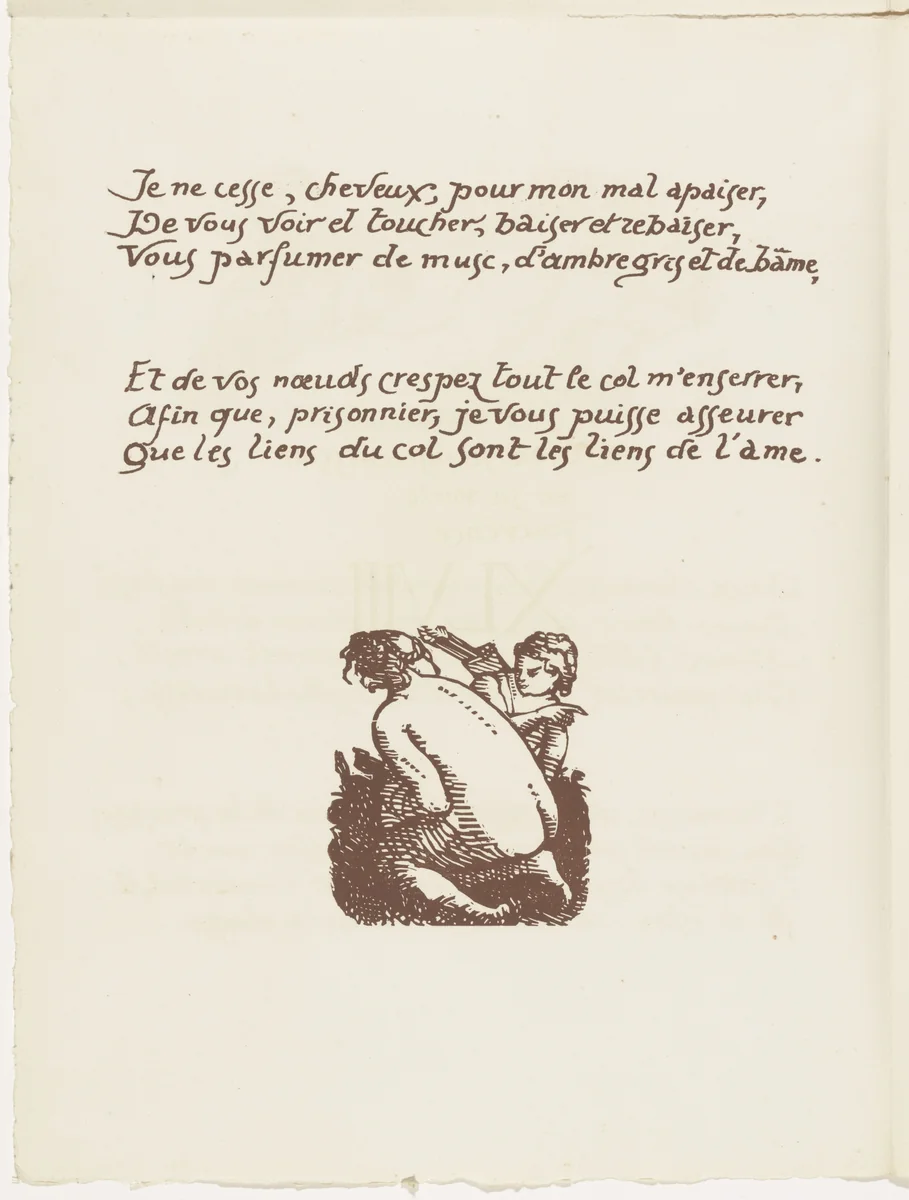 Je ne cesse, cheveux, pour mon mal apaiser,
De vous voir et toucher, baiser et rebaiser,
Vous parfumer de musc, d'ambre gris et de bâme,
Et de vos nœuds crespez tout le col m'enserrer,
Afin que, prisonnier, je vous puisse asseurer
Que les liens du col sont les liens de l'âme.